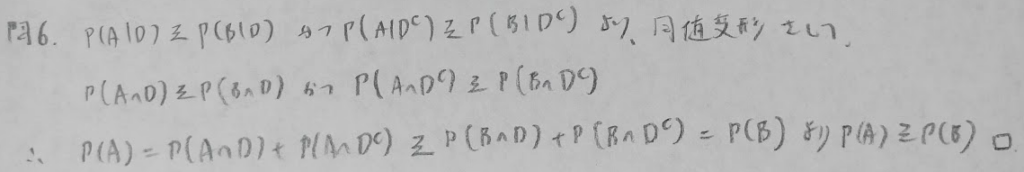 問6. P(A|D) ≧ P(B|D) かつ P(A|Dᶜ) ≧ P(B|Dᶜ) より、同値変形をして、
P(A∩D) ≧ P(B∩D) かつ P(A∩Dᶜ) ≧ P(B∩Dᶜ)
∴ P(A) = P(A∩D) + P(A∩Dᶜ) ≧ P(B∩D) + P(B∩Dᶜ) = P(B) より P(A) ≧ P(B) □